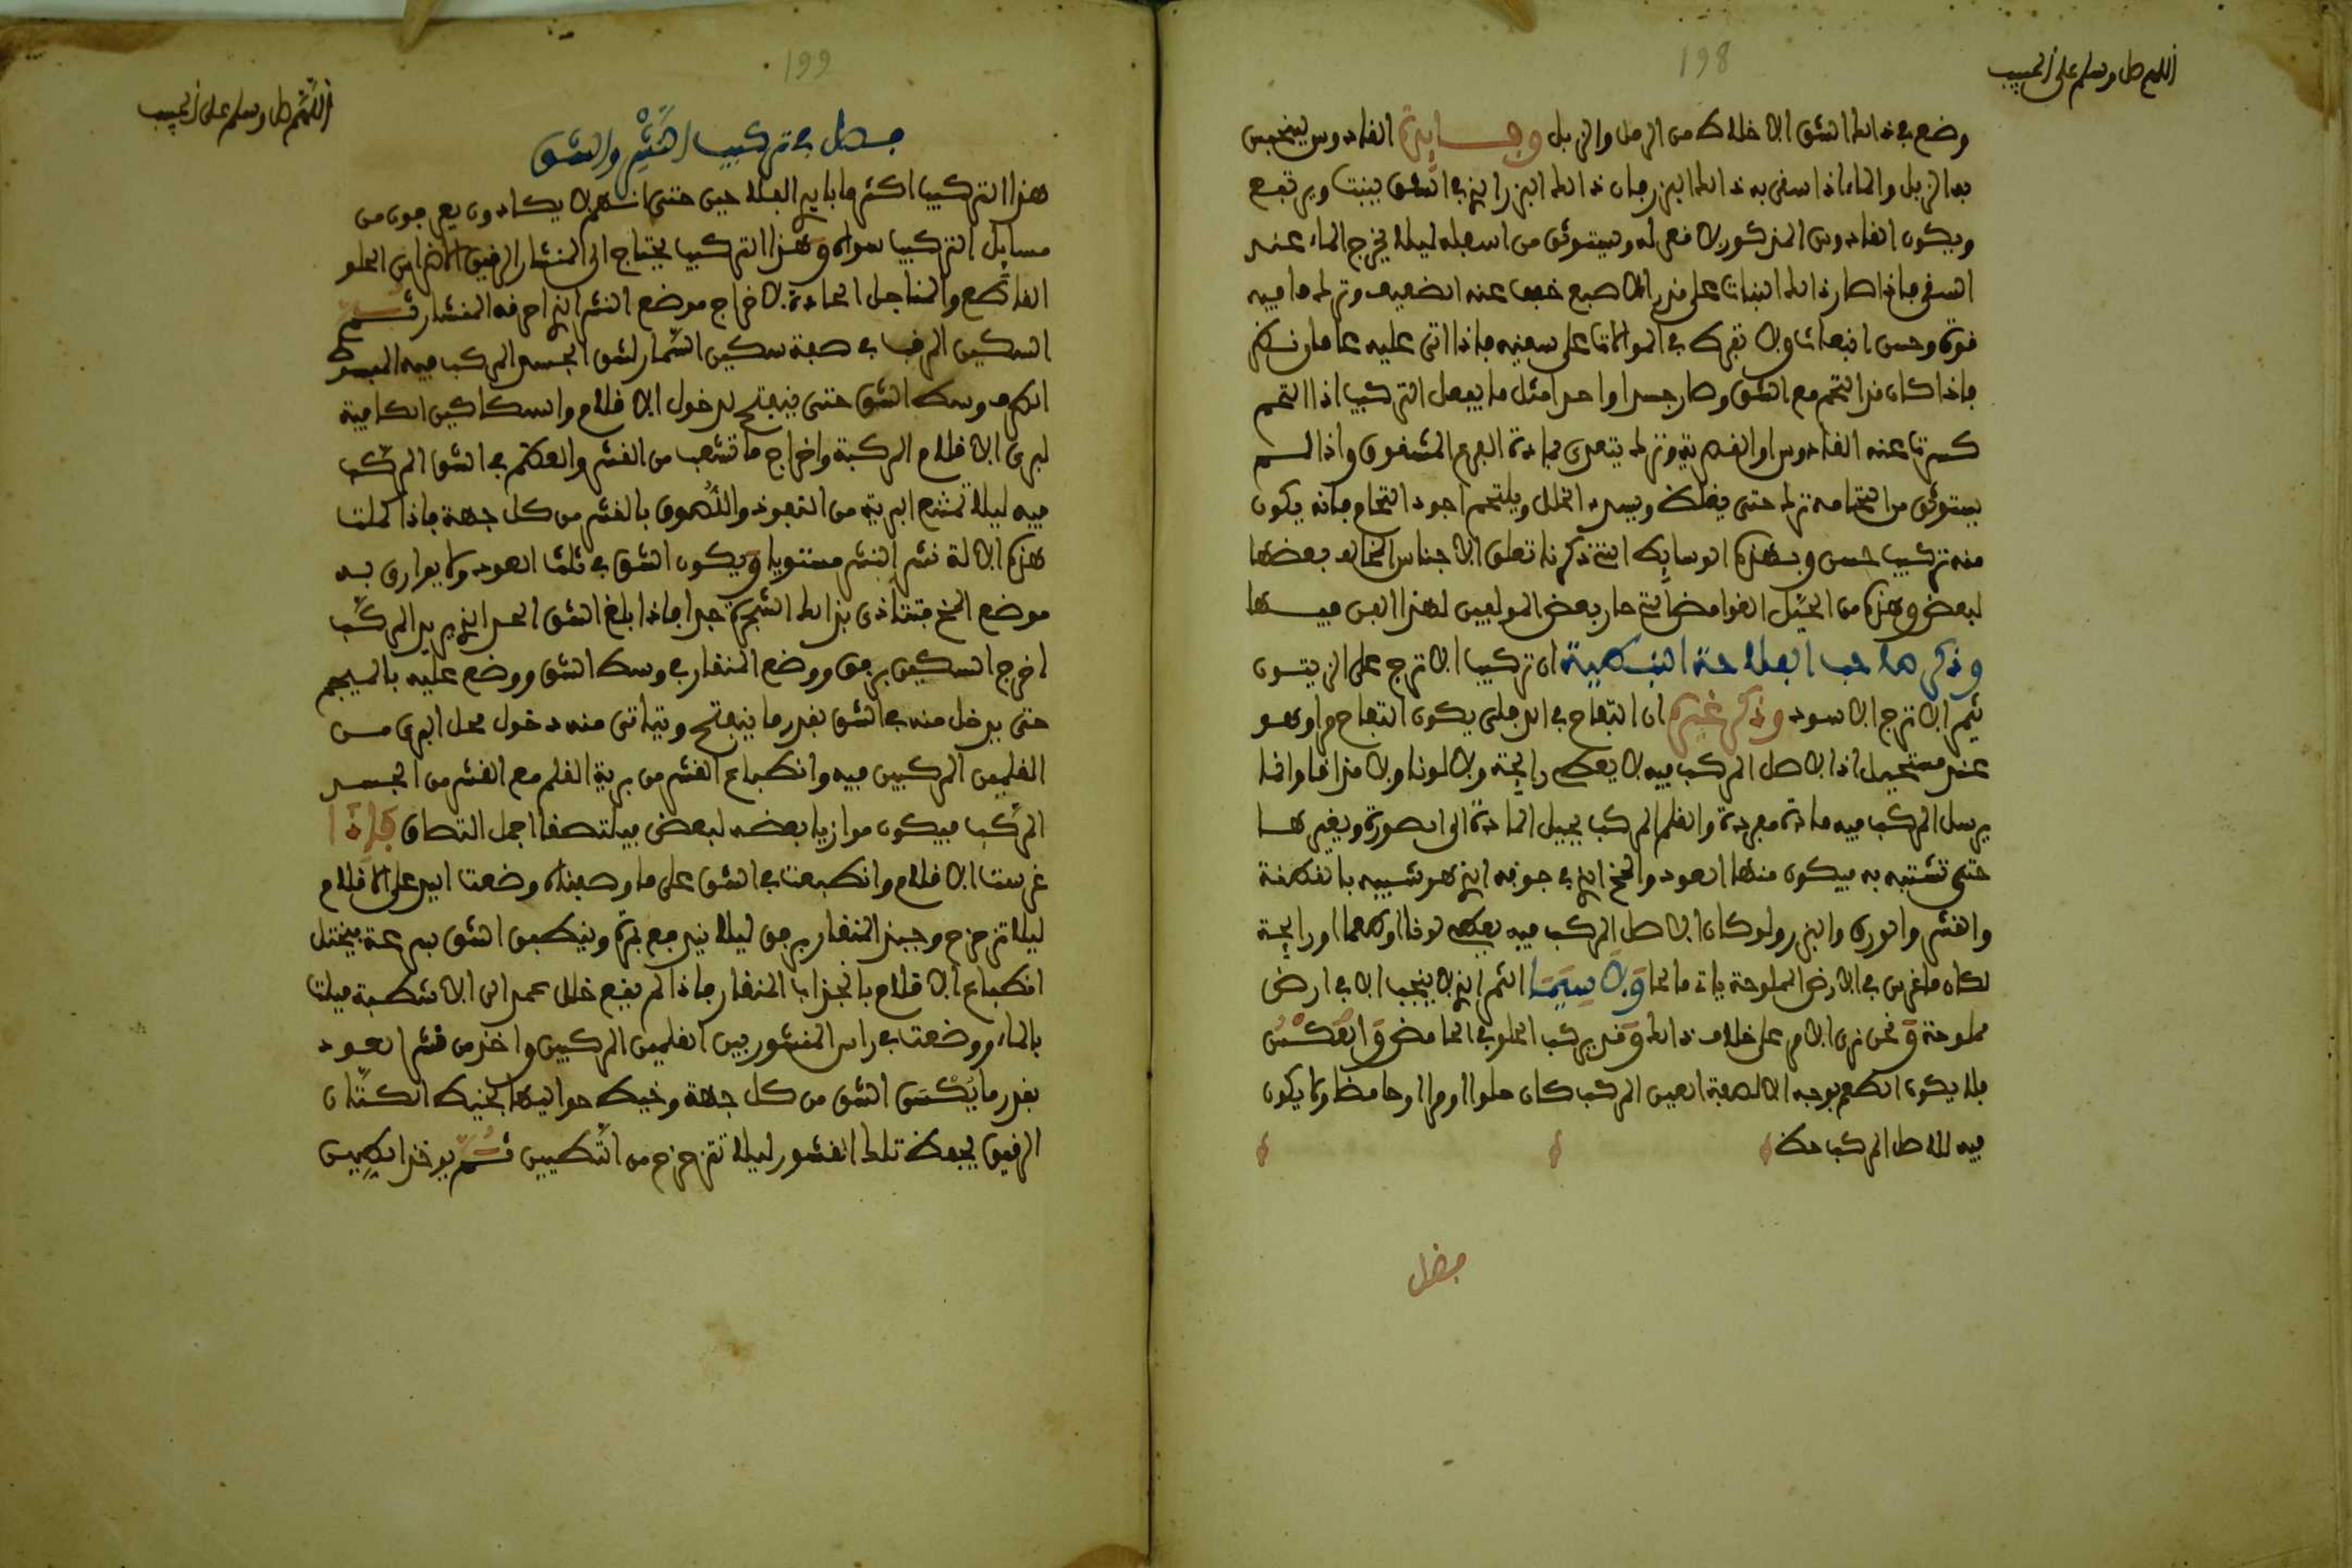 198
اللهم صل وسلم على الحبيب
وضع في ذلك الشق الاخلاط من الرمل والزبل وفايدة القادوس لينحبس
به الزبل والماء اذا سقى به ذلك البزر فان ذلك البزر الذي في الشق ينبت ويرتفع
ويكون القادوس المذكور لا قعر له ويستوثق من اسفله ليلا يخرج الماء عند
السقى فاذا صار ذلك النبات على قدر الاصبع خفف عنه الضعيف وترك ما فيه
قوة وحسن انبعاث ولا تفرط في الموالات على سقيه فاذا اتى عليه عام او نحوه
فاذا كان قد التحم مع الشق وصار جسدا واحدا مثل ما يفعل التركيب اذا التحم
كسرت عنه القادوس او القصرية وترك يتغذى بمادة الفرع المشقوق واذا لم
يستوثق من التحامه ترك حتى يغلظ ويسد الخلل ويلتحم اجود التحام فانه يكون
منه تركيب حسن وبهذه الوسايط التى ذكرناه تعلق الاجناس المخالف بعضها
لبعض وهذه من الحيل الغوامض التي حار بعض المولعين لهذا الفن فيها
وذكر صاحب الفلاحة النبطية ان تركيب الاترج على الزيتون
يثمر الاترج الاسود وذكر غيره ان التفاح في الدفلى يكون التفاح مرا وهو
عندى مستحيل اذا الاصل المركب فيه لا يعطى رايحة ولا لونا ولا مذاقا وانما
يرسل المركب فيه مادة مفردة والقلم المركب يحيل المادة الى الصورة ويغيرها
حتى تشتبه به فيكون منها العود والمخ الذي في جوفه الذي هو شبيه بالقطنة
والقشر والورق والبزر ولو كان الاصل المركب فيه يعطى لونا او طعما او رايحة
لكان ما غرس في الارض المملوحة يات مالحا ولا سيما الثمر الذي لا ينجب الا في ارض
مملوحة ونحن نرى الامر على خلاف ذلك وقد يركب الحلو في الحامض والعكس
فلا يكون الطعم بوجه الا لصفة العين المركب كان حلوا او مرا او حامضا ولا يكون
فيه للاصل المركب حظ
فصل
199
اللهم صل وسلم على الحبيب
فصل في تركيب النشر والشق
هذا التركيب اكثر ما بايدى الفلاحين حتى انهم لا يكادون يعرفون من
مسايل التركيب سواه وهذا التركيب يحتاج الى المنشار الرقيق الاضراس الحلو
القاطع والمناجل الحادة لاخراج موضع النشر الذي احرقه المنشار ثم
السكين المرهف في صفة سكين السمار لشق الجسد المركب فيه المبسوط
الطرف وسط الشق حتى ينفتح لدخول الاقلام والسكاكين الكافية
لبرى الاقلام المركبة واخراج ما تشعب من القشر والعظم في الشق المركب
فيه ليلا تمتنع البرية من النفوذ واللصوق بالقشر من كل جهة فاذا كملت
هذه الالة نشر النشر مستويا ويكون الشق في ثلثا العود ولا يوازى به
موضع المخ فتتاذى بذلك الشجرة جدا فاذا بلغ الشق الحد الذي يريد المركب
اخرج السكين برفق ووضع المنقار في وسط الشق ووضع عليه بالميجم
حتى يدخل منه في الشق بقدر ما ينفتح ويتاتى منه دخول محل البرى من
القلمين المركبين فيه وانطباع القشر من برية القلم مع القشر من الجسد
المركب فيكون موازيا بعضه لبعض فيلتصقا اجمل التصاق فاذا
غرست الاقلام وانطبعت في الشق على ما وصفناه وضعت اليد على الاقلام
ليلا تزحزح وجبذ المنقار برفق ليلا يندفع بمرة وينطبق الشق بسرعة فيختل
انطباع الاقلام بانجذاب المنقار فاذا لم يقع خلل عمد الى الاشطبة فبلت
بالماء ووضعت في راس المنشور بين القلمين المركبين واخذ من قشر العود
بقدر ما يكسى الشق من كل جهة وخيط حواليها بخيط الكتان
الرقيق يحفظ تلك القشور ليلا تتزحزح من التطيين ثم يوخذ الطين